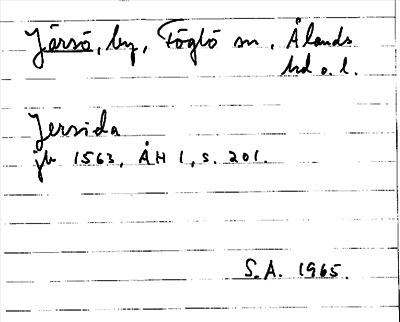 Jersö, by, Föglö sn, Ålands
hd o. l.
Jersida
jb 1563, ÅH 1, s. 201.
S.A. 1965.